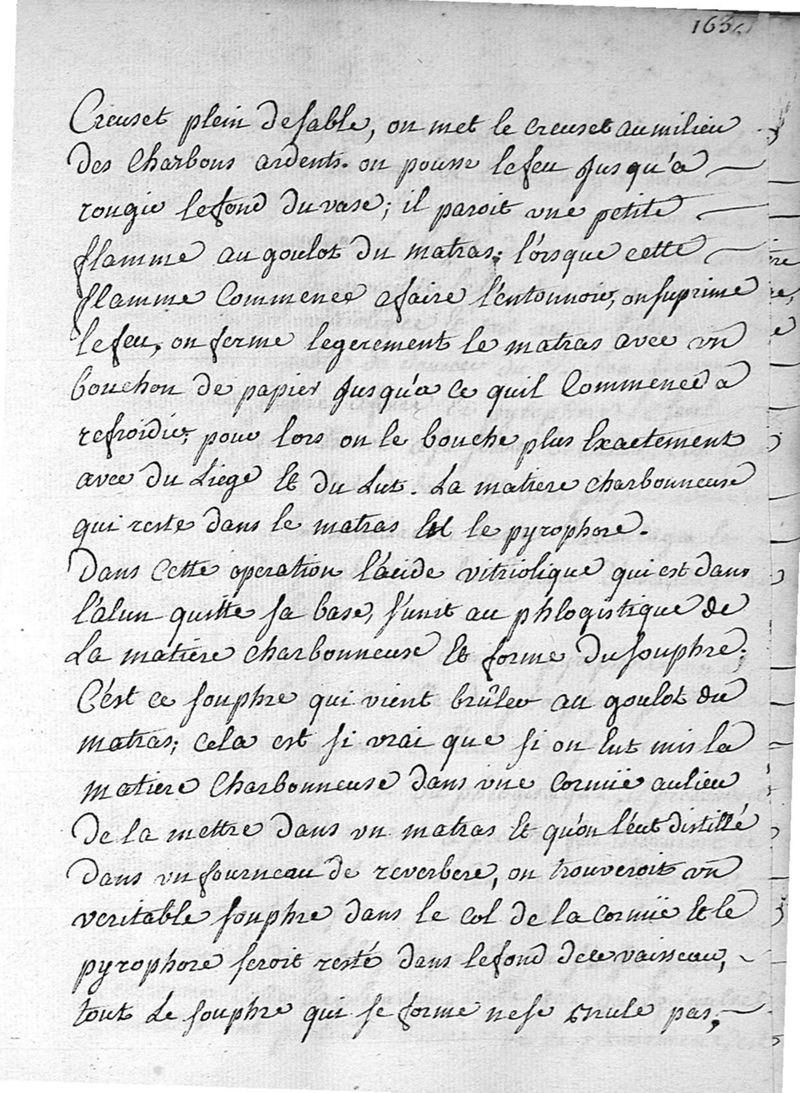 163
Creuset plein de sable, on met le creuset au milieu
des charbons ardents. on pousse le feu jusqu'a
rougir le fond du vase; il paroit une petite
flamme au goulot du matras; lorsque cette
flamme commence a faire l'entonnoir, on suprime
le feu, on ferme legerement le matras avec un
bouchon de papier jusqu'a ce quil commence a
refroidir, pour lors on le bouche plus Exactement
avec du Liege Et du Lut. La matiere charbonneuse
qui reste dans le matras Est le pyrophore.
Dans cette operation l'acide vitriolique qui est dans
l'alun quitte sa base, s'unit au phlogistique de
La matiere charbonneuse Et forme du souphre;
C'est ce souphre qui vient brûler au goulot du
matras; cela est si vrai que si on Eut mis la
matiere charbonneuse dans une cornüe au lieu
De la mettre dans un matras Et qu'on l'eut distillé
dans un fourneau de reverbere, on trouveroit un
veritable souphre dans le col de la cornüe Et le
pyrophore seroit resté dans le fond de ce vaisseau,
tout Le souphre qui se forme ne se brule pas,